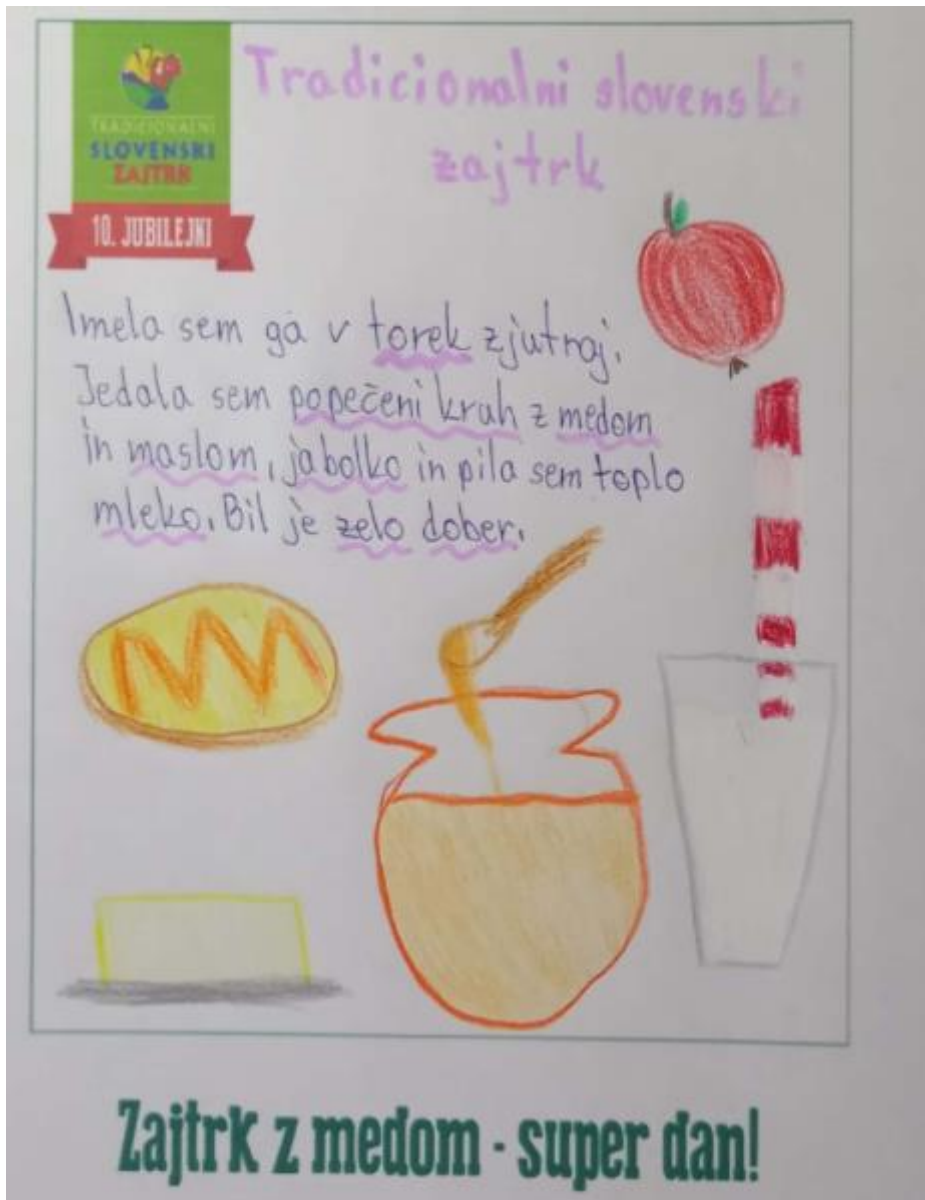 TRADICIONALNI
SLOVENSKI
ZAJTRK
10. JUBILEJNI
Tradicionalni slovenski
zajtrk
Imela sem ga v torek zjutraj.
Jedala sem popečeni kruh z medom
in maslom, jabolko in pila sem toplo
mleko. Bil je zelo dober.
Zajtrk z medom - super dan!